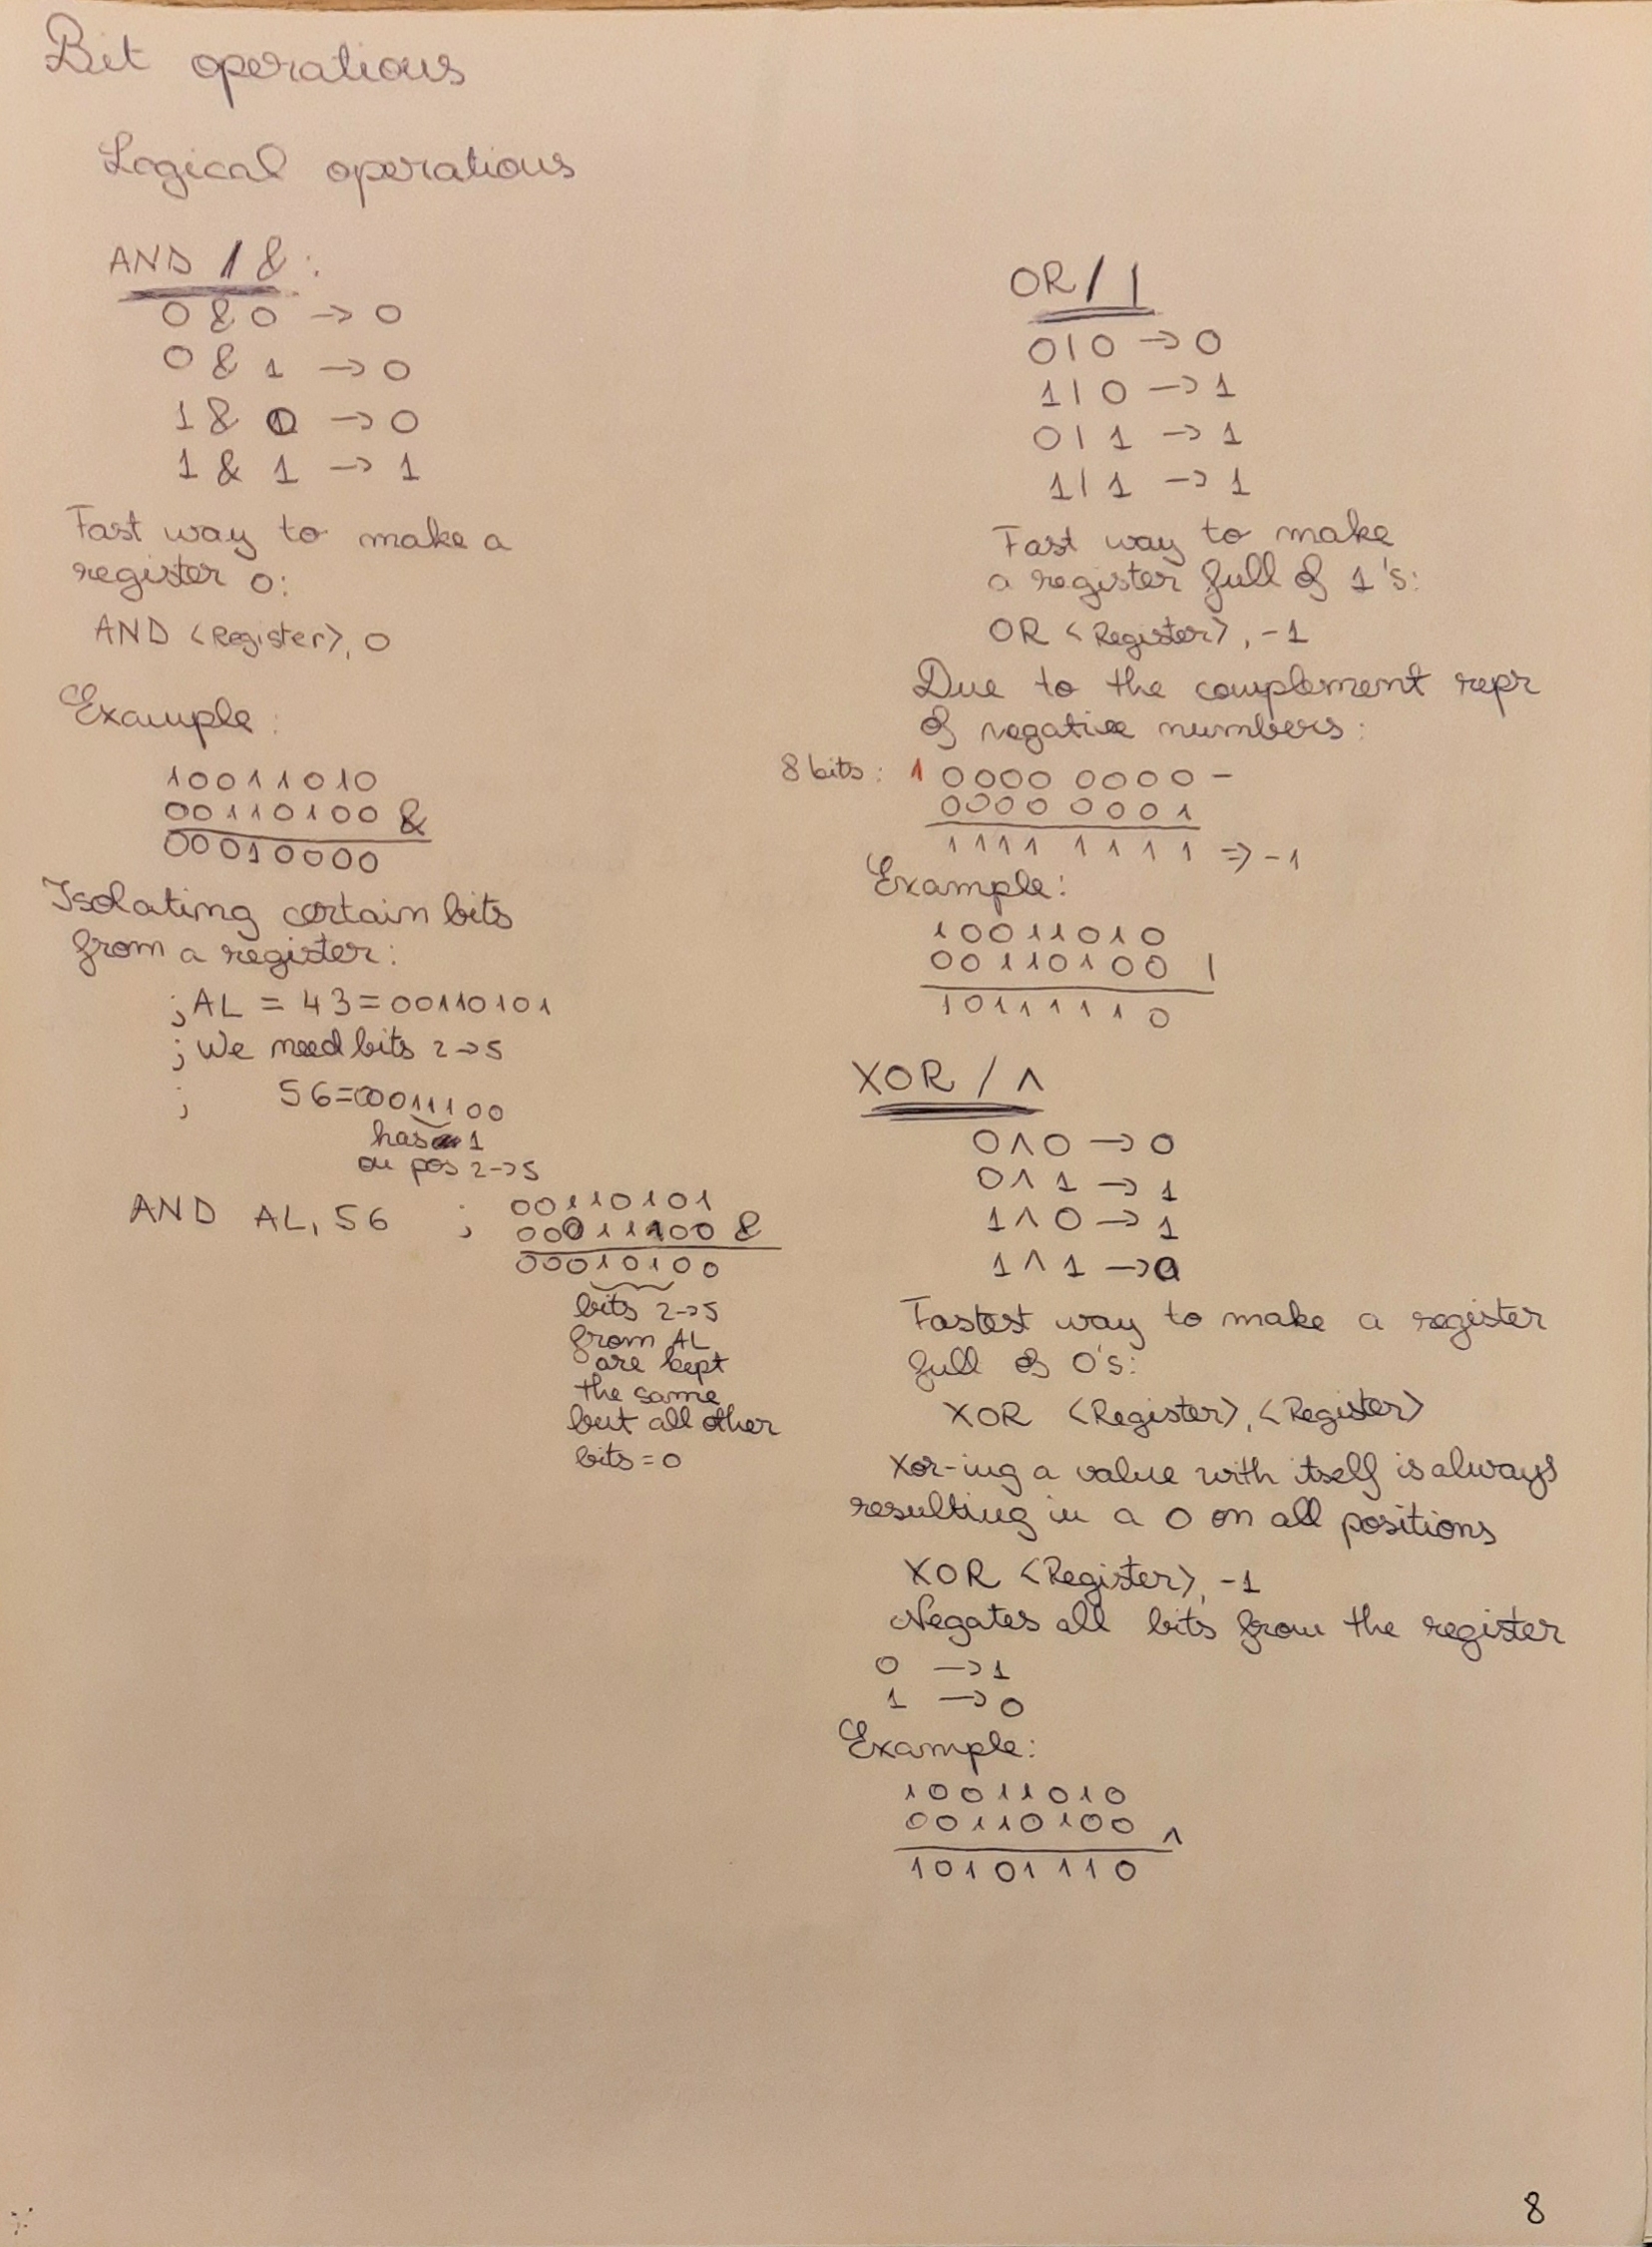 Bit operations
Logical operations
AND / & :
0 & 0 -> 0
0 & 1 -> 0
1 & 0 -> 0
1 & 1 -> 1
Fast way to make a
register 0:
AND <Register>, 0
Example:
10011010
00110100 &
00010000
Isolating certain bits
from a register:
; AL = 43 = 00110101
; We need bits 2->5
; 56=00011100
has 1
on pos 2->5
AND AL, 56 ; 00110101
00011100 &
00010100
bits 2->5
from AL
are kept
the same
but all other
bits = 0
OR / |
0 | 0 -> 0
1 | 0 -> 1
0 | 1 -> 1
1 | 1 -> 1
Fast way to make
a register full of 1's:
OR <Register>, -1
Due to the complement repr
of negative numbers:
8 bits: 1 0000 0000 -
0000 0001
1111 1111 => -1
Example:
10011010
00110100 |
10111110
XOR / ^
0 ^ 0 -> 0
0 ^ 1 -> 1
1 ^ 0 -> 1
1 ^ 1 -> 0
Fastest way to make a register
full of 0's:
XOR <Register>, <Register>
Xor-ing a value with itself is always
resulting in a 0 on all positions
XOR <Register>, -1
Negates all bits from the register
0 -> 1
1 -> 0
Example:
10011010
00110100 ^
10101110
8